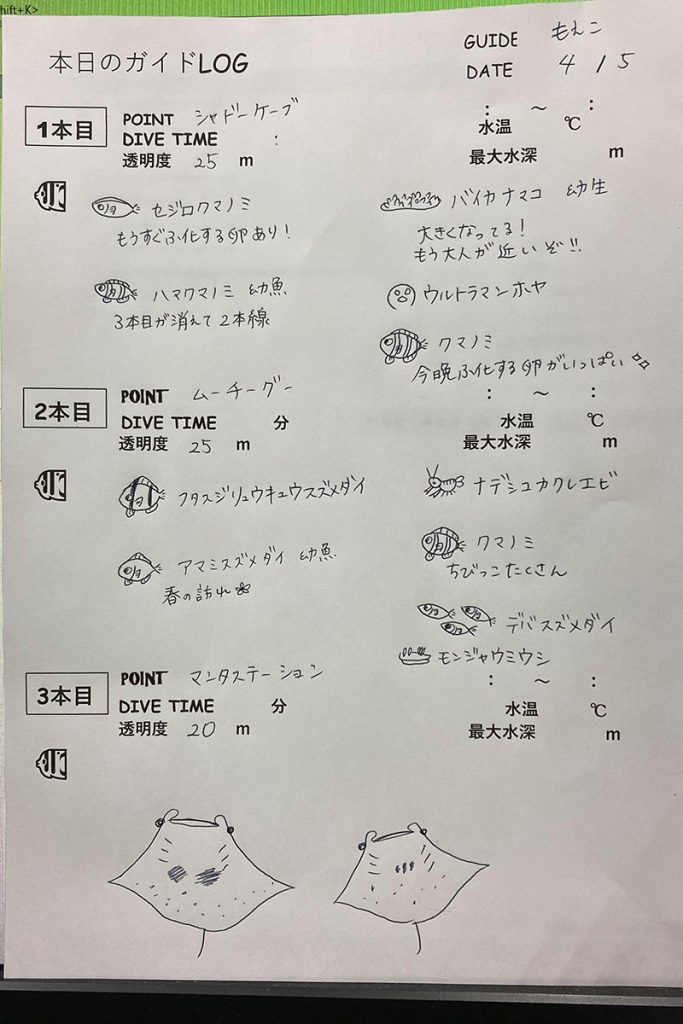 hift+K>
本日のガイドLOG
GUIDE もえこ
DATE 4 15
1本目
POINT シャドーケーブ
: ～ :
DIVE TIME :
水温 ℃
透明度 25 m
最大水深 m
セジロクマノミ
もうすぐふ化する卵あり!
バイカナマコ 幼生
大きくなってる!
もう大人が近いぞ!!
ハマクマノミ 幼魚
3本目が消えて2本線
ウルトラマンホヤ
クマノミ
今晩ふ化する卵がいっぱい
2本目
POINT ムーチーグー
: ～ :
DIVE TIME 分
水温 ℃
透明度 25 m
最大水深 m
フタスジリュウキュウスズメダイ
ナデシコカクレエビ
アマミスズメダイ 幼魚
春の訪れ
クマノミ
ちびっこたくさん
デバスズメダイ
モンジャウミウシ
3本目
POINT マンタステーション
: ～ :
DIVE TIME 分
水温 ℃
透明度 20 m
最大水深 m